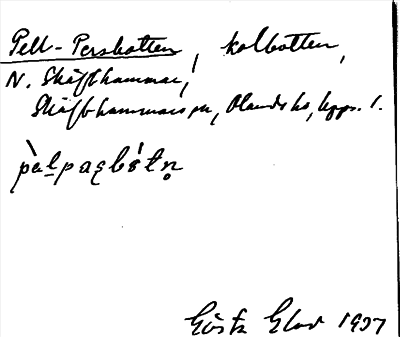 Pell-Persbotten, kolbotten,
N. Skäfthammar,
Skäfthammars sn, Olands hd, Upps. l.
pe̱lpaʂbótn̥
Gösta Elov 1937